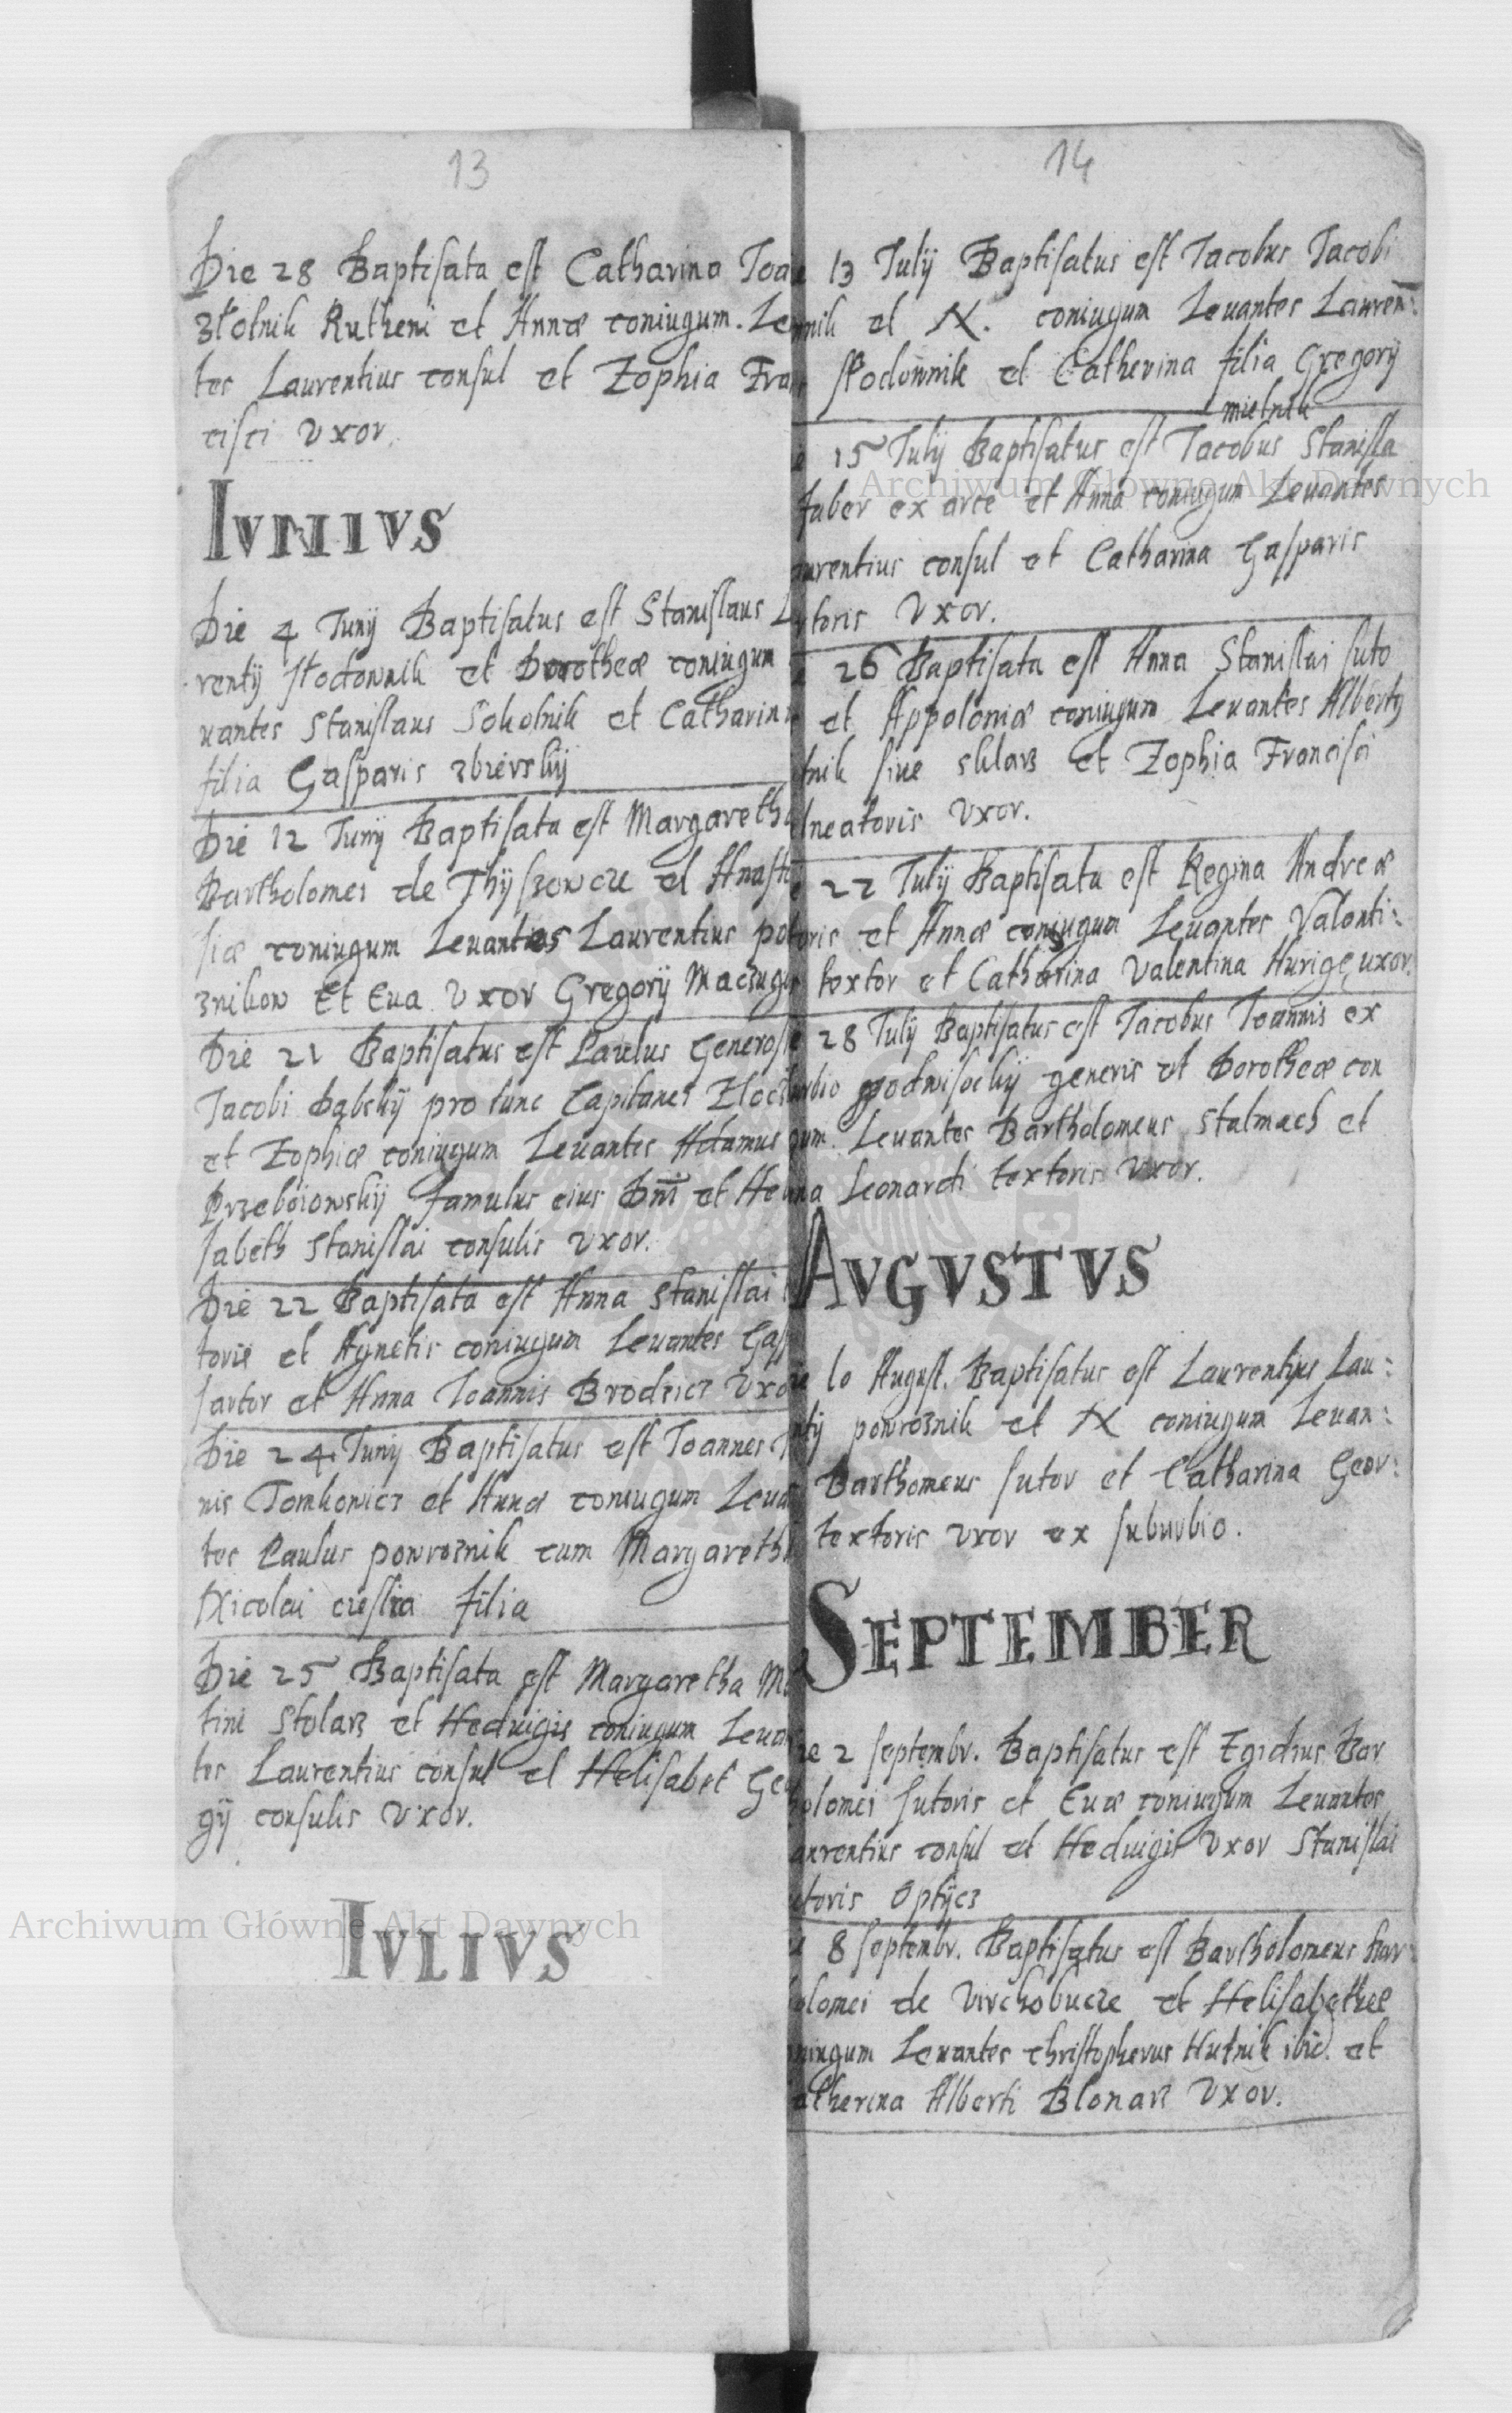 13
Die 28 Baptisata est Catharina Joa
złotnik Rutheni et Annæ coniugum. Le
tes Laurentius consul et Zophia Fra
cisci Uxor.
IUNIUS
Die 4 Junij Baptisatus est Stanislaus L
rentij słodownik et Dorotheæ coniugum
uantes Stanislaus Sokolnik et Catharin
filia Gasparis zbierskij
Die 12 Junij Baptisata est Margareth
Bartholomei de Thijszowcze et Anasta
siæ coniugum Leuantes Laurentius po
znikow Et Eua Uxor Gregorij Maczug
Die 21 Baptisatus est Paulus Generosi
Jacobi Dąbskij pro tunc Capitanei Zlocz
et Zophiæ coniugum Leuantes Adamus
Przeboiowskij famulus eius Dni et He
sabeth Stanislai consulis Uxor.
Die 22 Baptisata est Anna Stanislai
toris et Agnetis coniugum Leuantes Gasp
sartor et Anna Joannis Brodzicz Uxo
Die 24 Junij Baptisatus est Joannes
nis Tomkowicz et Annæ coniugum Leua
tes Paulus powroznik cum Margareth
Nicolai cieslia filia
Die 25 Baptisata est Margaretha Ma
tini Stolarz et Heduigis coniugum Leua
tes Laurentius consul et Helisabet Ge
gij consulis Uxor.
IULIUS
14
13 Julij Baptisatus est Jacobus Jacobi
nik et N. coniugum Leuantes Lauren:
słodownik et Catherina filia Gregorij
mielnik
15 Julij Baptisatus est Jacobus Stanisla
faber ex arce et Anna coniugum Leuantes
urentius consul et Catharina Gasparis
toris Uxor.
26 Baptisata est Anna Stanislai suto
et Appoloniæ coniugum Leuantes Albertq
tnik siue sklarz et Zophia Francisci
lneatoris Uxor.
22 Julij Baptisata est Regina Andreæ
oris et Annæ coniugum Leuantes Valenti:
textor et Catharina Valentina Kurige uxor.
28 Julij Baptisatus est Jacobus Joannis ex
urbio podwisockij generis et Dorotheæ con
gum. Leuantes Bartholomeus stalmach et
na Leonardi textoris Uxor.
AUGUSTUS
ie 10 August. Baptisatus est Laurentius Lau:
ntij powroznik et N coniugum Leuan:
Barthomeus sutor et Catharina Geor:
textoris uxor ex suburbio.
SEPTEMBER
ie 2 septembr. Baptisatus est Egidius Bar
holomei sutoris et Euæ coniugum Leuantes
aurentius consul et Heduigis Uxor Stanislai
ctoris Optÿcz
8 septembr. Baptisatus est Bartholomeus Bar
olomei de Wirchobucze et Helisabethæ
niugum Leuantes christopherus Hutnik ibid. et
atherina Alberti Blonarz Uxor.
Archiwum Główne Akt Dawnych
Archiwum Główne Akt Dawnych